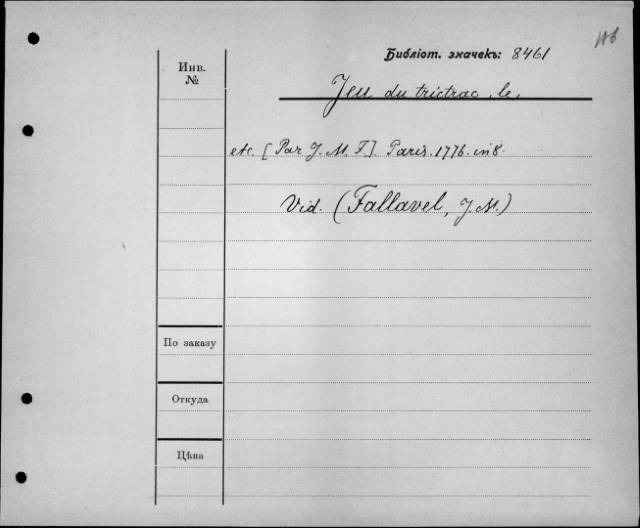 Библіот. значекъ: 8461
Инв.
№
Jeu du trictrac, le,
etc. [Par J. M. F]. Paris. 1776. in 8.
Vid. (Fallavel, J. M.)
По заказу
Откуда
Цѣна